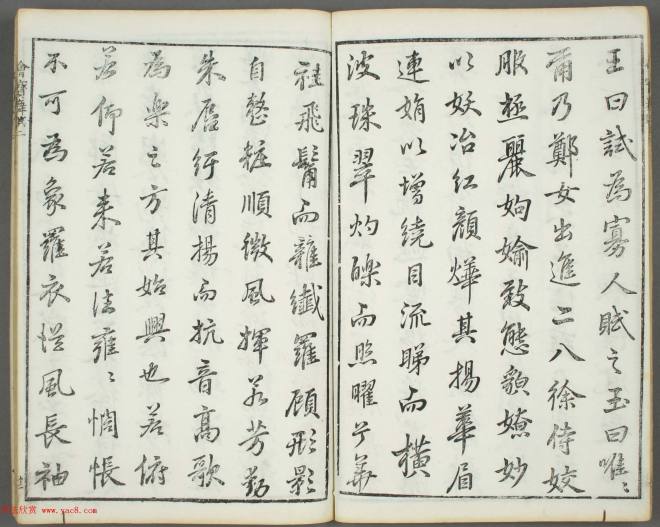 王曰試為寡人賦之玉曰唯〻
爾乃鄭女出進二八徐侍姣
服極麗姁媮致態貌嫽妙
以妖冶紅顏燁其揚華眉
連娟以增繞目流睇而橫
波珠翠灼皪而照曜兮華
袿飛髾而雜纖羅顧形影
自整粧順微風揮若芳動
朱唇紆清揚而抗音高歌
為樂之方其始興也若俯
若仰若來若往雍〻惆悵
不可為象羅衣從風長袖
www.yac8.com